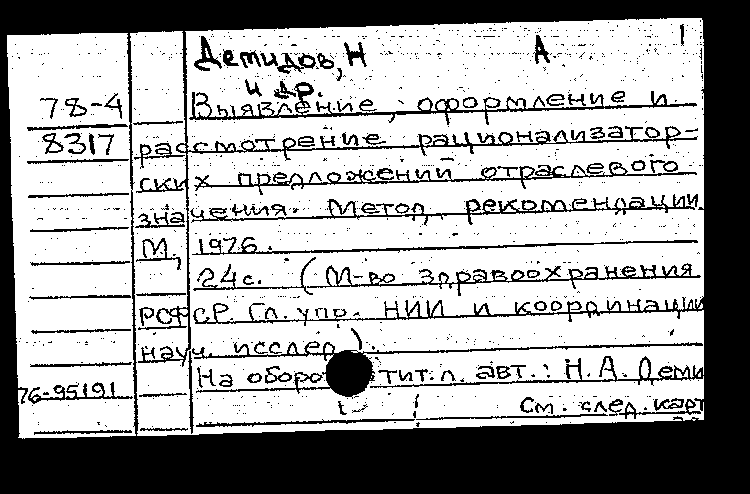 Демидов, Н А. 1
и др.
78-4 Выявление, оформление и
8317 рассмотрение рационализатор-
ских предложений отраслевого
значения. Метод. рекомендации.
М., 1976.
24с. (М-во здравоохранения
РСФСР. Гл. упр. НИИ и координации
науч. исслед.).
На оборо тит. л. авт.: Н. А. Деми
76-95191
См. след. карт